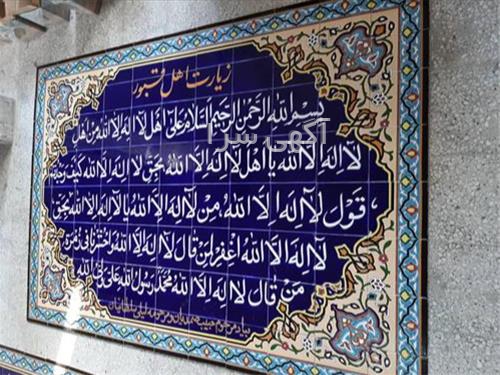 زیارت اهل قبور
بِسْمِ اللهِ الرَّحْمنِ الرَّحیمِ اَلسَّلامُ عَلی اَهْلِ لا اِلهَ اِلَّا اللهُ مِنْ اَهْلِ
لا اِلهَ اِلَّا اللهُ یا اَهْلَ لا اِلهَ اِلَّا اللهُ بِحَقِّ لا اِلهَ اِلَّا اللهُ کَیْفَ وَجَدْتُمْ
قَوْلَ لا اِلهَ اِلَّا اللهُ مِنْ لا اِلهَ اِلَّا اللهُ یا لا اِلهَ اِلَّا اللهُ بِحَقِّ
لا اِلهَ اِلَّا اللهُ اِغْفِرْ لِمَنْ قالَ لا اِلهَ اِلَّا اللهُ وَاحْشُرْنا فی زُمْرَةِ
مَنْ قالَ لا اِلهَ اِلَّا اللهُ مُحَمَّدٌ رَسُولُ اللهِ عَلِیٌّ وَلِیُّ اللهِ
بیاد مرحوم حبیب
آگهی سرا